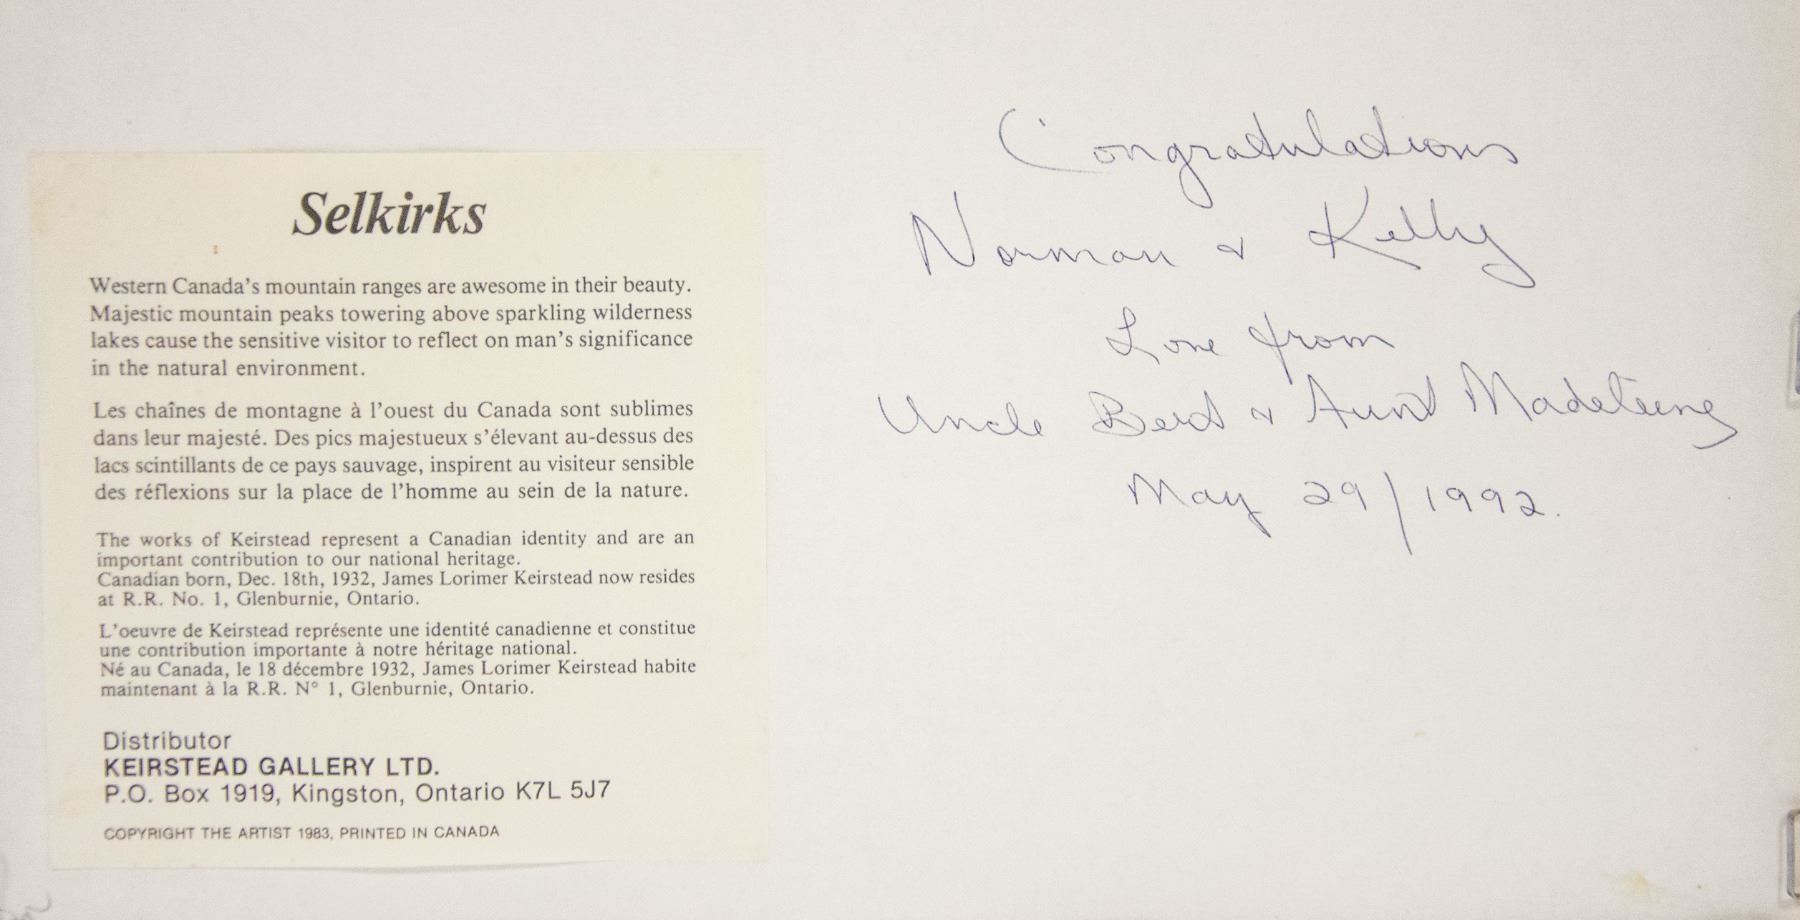 Selkirks
Western Canada's mountain ranges are awesome in their beauty.
Majestic mountain peaks towering above sparkling wilderness
lakes cause the sensitive visitor to reflect on man's significance
in the natural environment.
Les chaînes de montagne à l'ouest du Canada sont sublimes
dans leur majesté. Des pics majestueux s'élevant au-dessus des
lacs scintillants de ce pays sauvage, inspirent au visiteur sensible
des réflexions sur la place de l'homme au sein de la nature.
The works of Keirstead represent a Canadian identity and are an
important contribution to our national heritage.
Canadian born, Dec. 18th, 1932, James Lorimer Keirstead now resides
at R.R. No. 1, Glenburnie, Ontario.
L'oeuvre de Keirstead représente une identité canadienne et constitue
une contribution importante à notre héritage national.
Né au Canada, le 18 décembre 1932, James Lorimer Keirstead habite
maintenant à la R.R. N° 1, Glenburnie, Ontario.
Distributor
KEIRSTEAD GALLERY LTD.
P.O. Box 1919, Kingston, Ontario K7L 5J7
COPYRIGHT THE ARTIST 1983, PRINTED IN CANADA
Congratulations
Norman & Kelly
Love from
Uncle Bert & Aunt
May 29/1992.